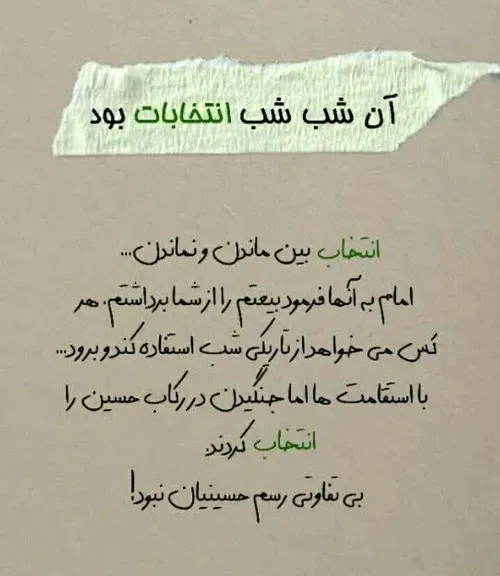 آن شب شب انتخابات بود
انتخاب بین ماندن و نماندن...
امام به آنها فرمود بیعتم را از شما برداشتم. هر
کس می خواهد از تاریکی شب استفاده کند و برود...
با استقامت ها اما جنگیدن در رکاب حسین را
انتخاب کردند.
بی تفاوتی رسم حسینیان نبود!